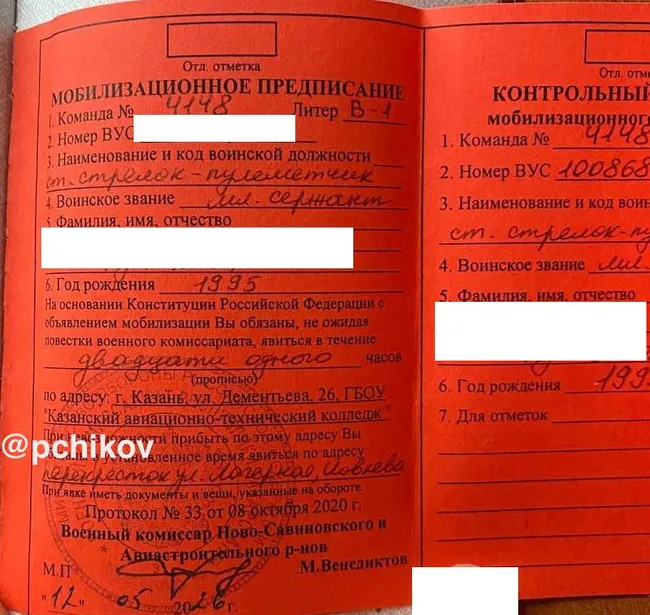 Отл. отметка
МОБИЛИЗАЦИОННОЕ ПРЕДПИСАНИЕ
1. Команда № 4148 Литер В-1
2. Номер ВУС
3. Наименование и код воинской должности
ст. стрелок-пулеметчик
4. Воинское звание мл. сержант
5 Фамилия, имя, отчество
6. Год рождения 1995
На основании Конституции Российской Федерации с
объявлением мобилизации Вы обязаны, не ожидая
повестки военного комиссариата, явиться в течение
двадцати одного часов
(прописью)
по адресу: г. Казань, ул. Дементьева, 26, ГБОУ
"Казанский авиационно-технический колледж"
@pchikov
При невозможности прибыть по этому адресу Вы
установленное время явиться по адресу
перекресток ул. Логерная,
При явке иметь документы и вещи, указанные на обороте.
Протокол № 33 от 08 октября 2020 г.
Военный комиссар Ново-Савиновского и
Авиастроительного р-нов
М.П М.Венедиктов
"12" 05 г.
Отл. отм
КОНТРОЛЬНЫЙ
мобилизационного
1. Команда № 4148
2. Номер ВУС 100868
3. Наименование и код воин
ст. стрелок-пу
4. Воинское звание мл.
5. Фамилия, имя, отчество
6. Год рождения 199
7. Для отметок